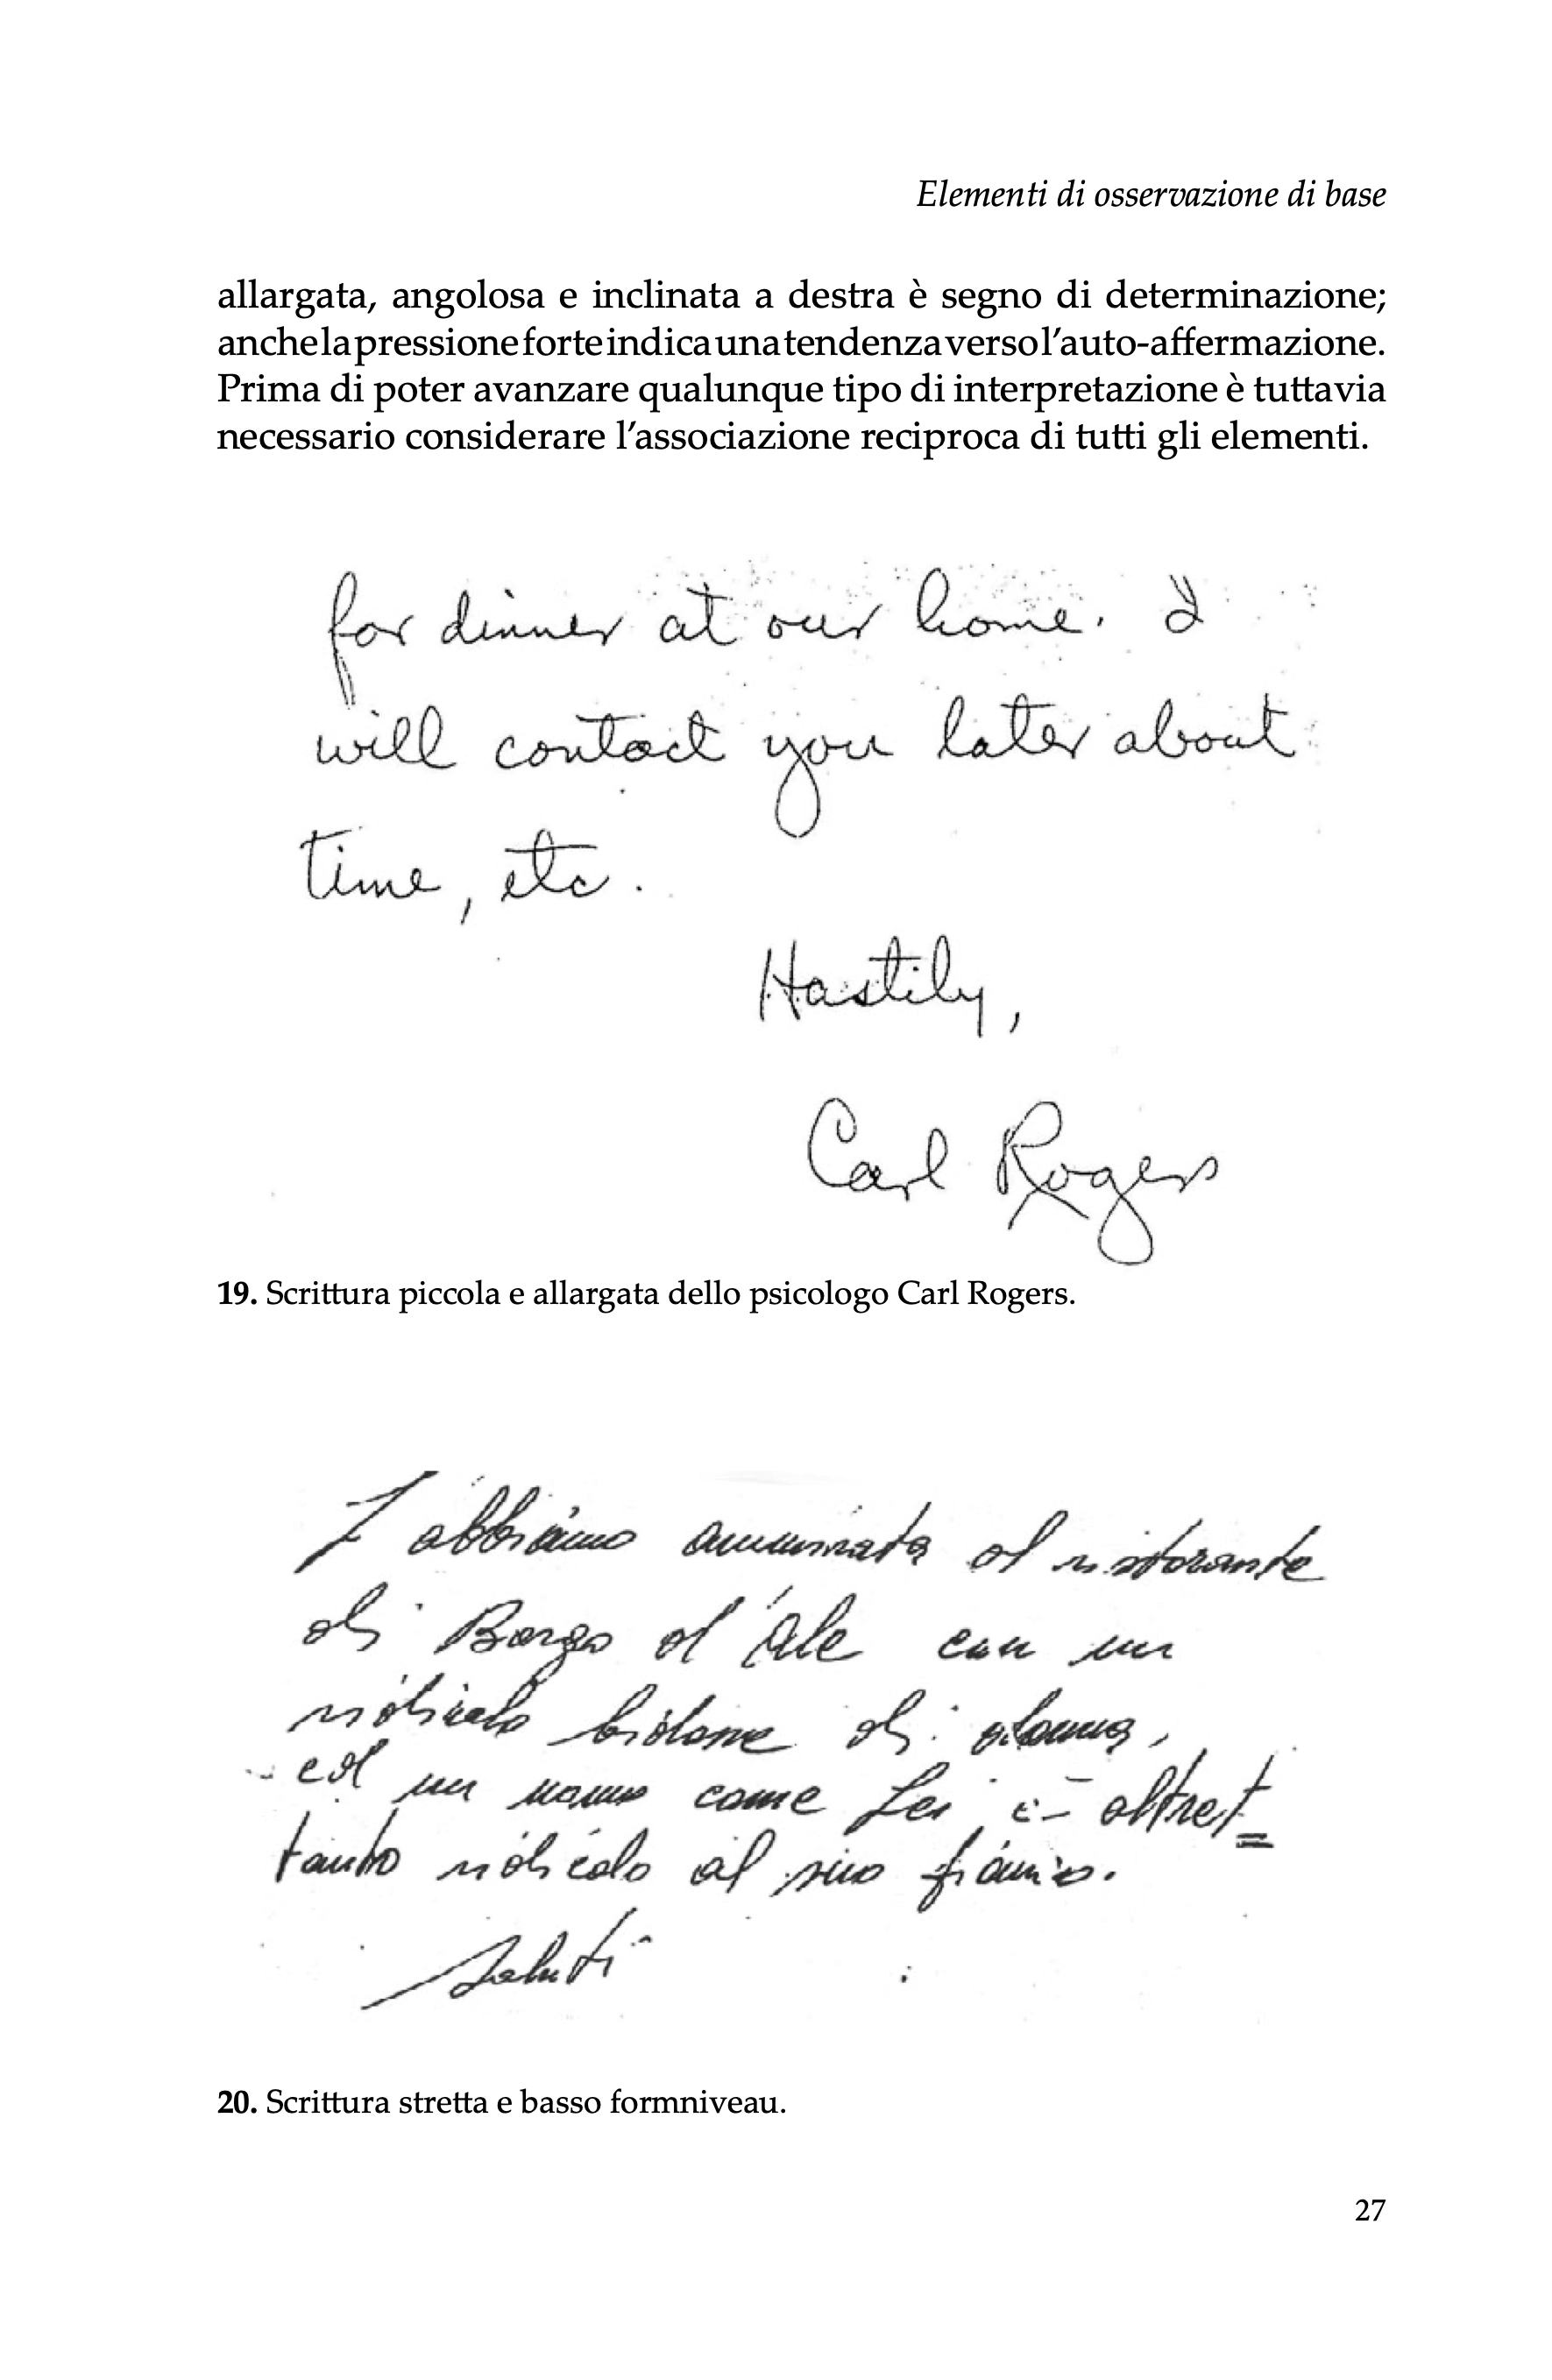 Elementi di osservazione di base
allargata, angolosa e inclinata a destra è segno di determinazione;
anche la pressione forte indica una tendenza verso l'auto-affermazione.
Prima di poter avanzare qualunque tipo di interpretazione è tuttavia
necessario considerare l'associazione reciproca di tutti gli elementi.
for dinner at our home. I
will contact you later about
time, etc.
Hastily,
Carl Rogers
19. Scrittura piccola e allargata dello psicologo Carl Rogers.
abbiamo ammirata al ristorante
di Borgo d'Ale con un
ridicolo bidone di donna,
ed un uomo come Lei è altret=
tanto ridicolo al suo fianco.
Saluti
20. Scrittura stretta e basso formniveau.
27